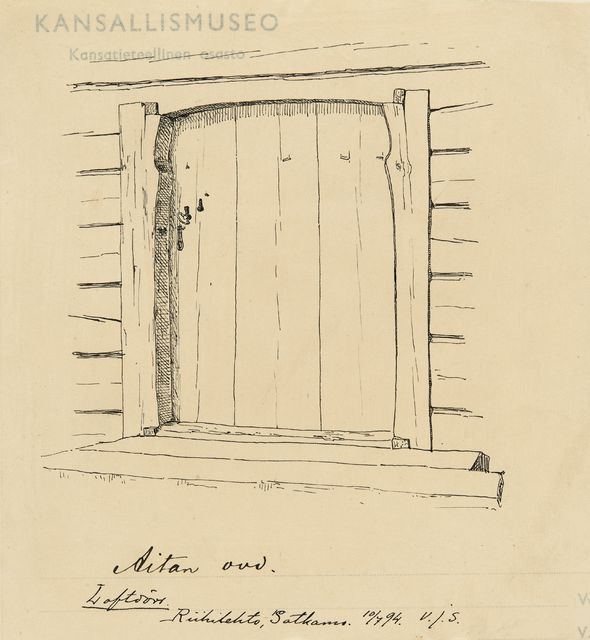 KANSALLISMUSEO
Kansatieteellinen osasto
Aitan ovi.
Loftdörr.
Riihilehto, Sotkamo. 10/7 94. V. J. S.